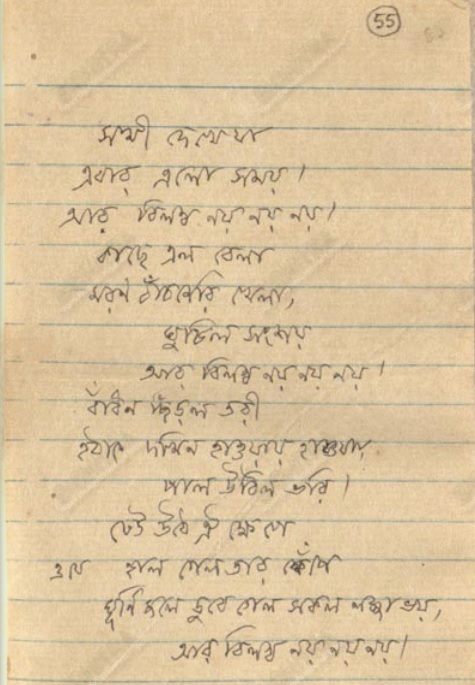 55
সখী দেখে যা
এবার এলো সময়।
আর বিলম্ব নয় নয় নয়।
কাছে এল বেলা
মরণ বাঁচনেরি খেলা,
ঘুচিল সংশয়
আর বিলম্ব নয় নয় নয়।
বাঁধন ছিঁড়ল তরী
হঠাৎ দখিন হাওয়ায় হাওয়ায়
পাল উঠিল ভরি।
ঢেউ উঠে ঐ ক্ষেপে
ওযে হাল গেল তার কেঁপে
ঘূর্ণি জলে ডুবে গেল সকল লজ্জা ভয়,
আর বিলম্ব নয় নয় নয়।